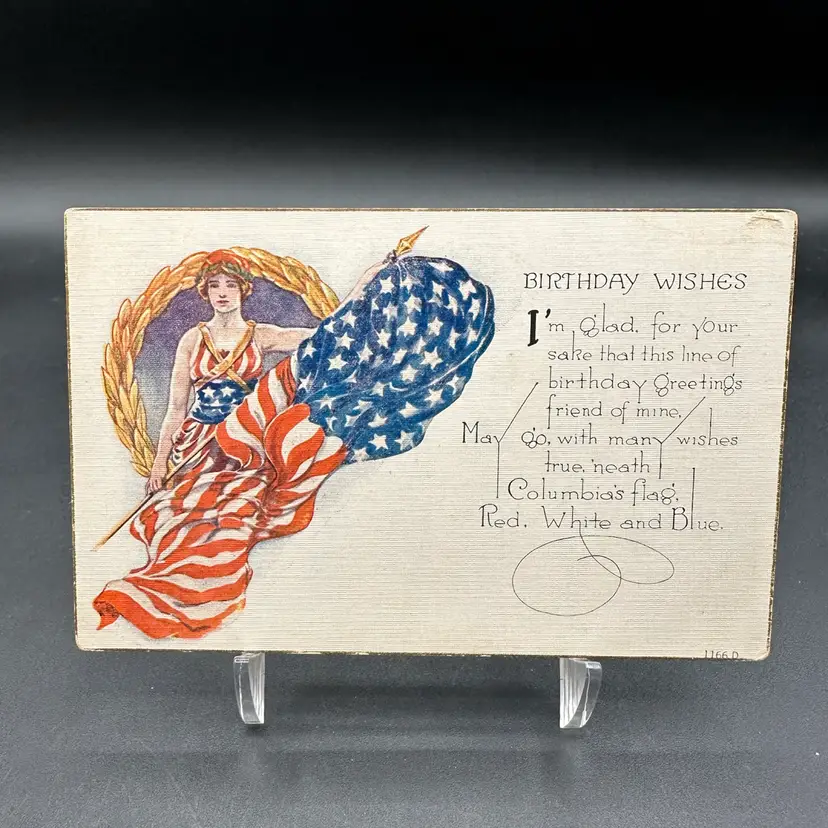 BIRTHDAY WISHES
I'm glad, for your
sake that this line of
birthday greetings
friend of mine,
May go, with many wishes
true, 'neath
Columbia's flag,
Red, White and Blue.
1166 D.